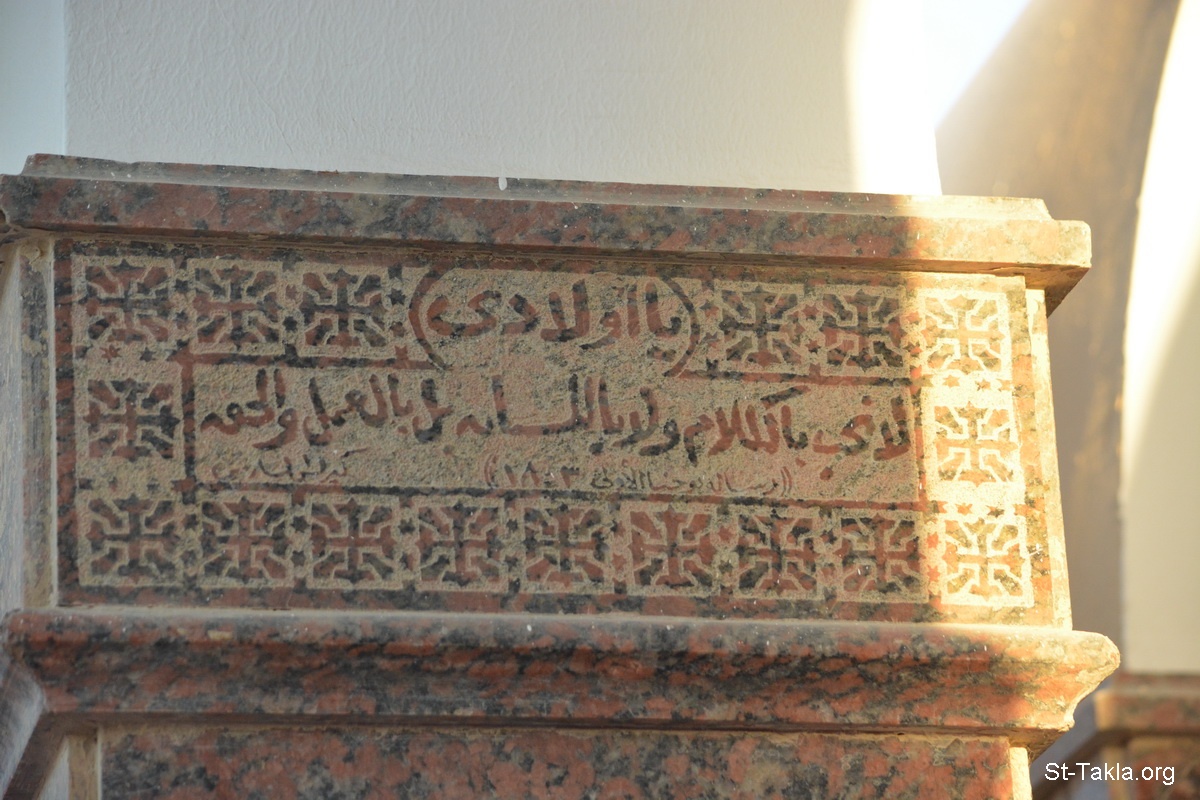 يا أولادى
لا نحب بالكلام ولا باللسان بل بالعمل والحق
((رسالة يوحنا الأولى ٣:١٨))
St-Takla.org